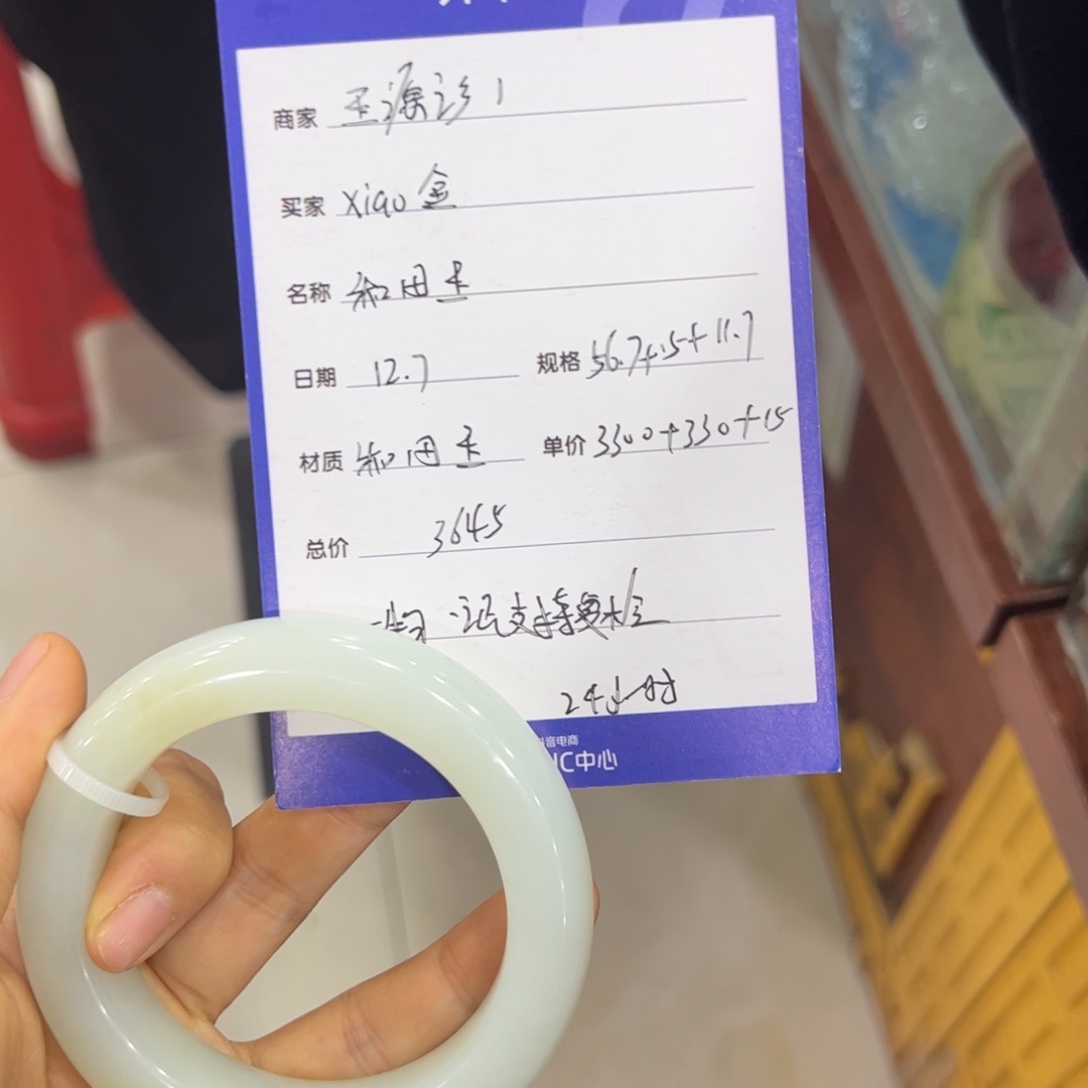 商家 玉源诊1
买家 xiao金
名称 和田玉
日期 12.7 规格 56.7+15+11.7
材质 和田玉 单价 3300+330+15
总价 3645
一物一证支持复检
24小时
抖音电商
IC中心